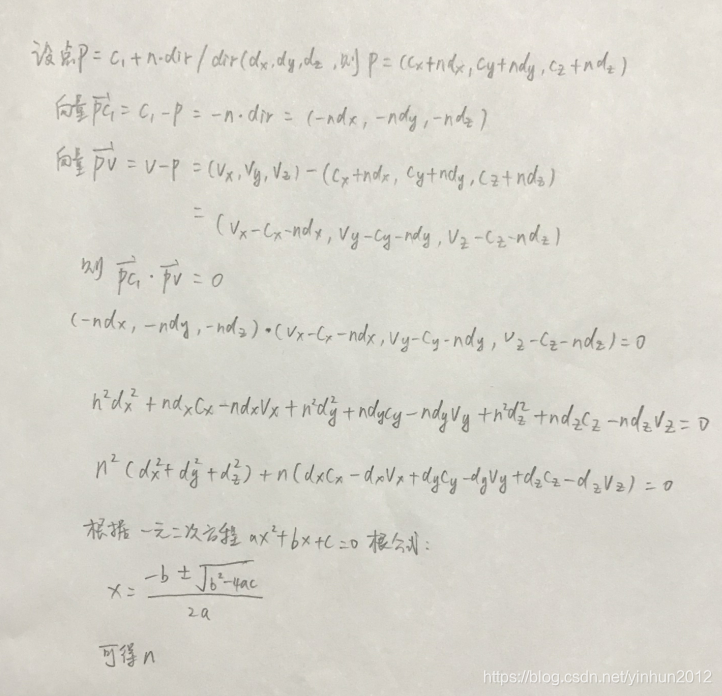 设点P = C₁ + n·dir / dir(dx, dy, dz, 则 P = (Cx+ndx, Cy+ndy, Cz+ndz)
向量PC₁ = C₁ - P = -n·dir = (-ndx, -ndy, -ndz)
向量PV = V - P = (Vx, Vy, Vz) - (Cx+ndx, Cy+ndy, Cz+ndz)
= (Vx-Cx-ndx, Vy-Cy-ndy, Vz-Cz-ndz)
则 PC₁ · PV = 0
(-ndx, -ndy, -ndz)·(Vx-Cx-ndx, Vy-Cy-ndy, Vz-Cz-ndz) = 0
n²dx² + ndxCx - ndxVx + n²dy² + ndyCy - ndyVy + n²dz² + ndzCz - ndzVz = 0
n²(dx²+dy²+dz²) + n(dxCx - dxVx + dyCy - dyVy + dzCz - dzVz) = 0
根据一元二次方程 ax²+bx+c=0 根公式:
x = (-b ± √(b²-4ac)) / 2a
可得n
https://blog.csdn.net/yinhun2012